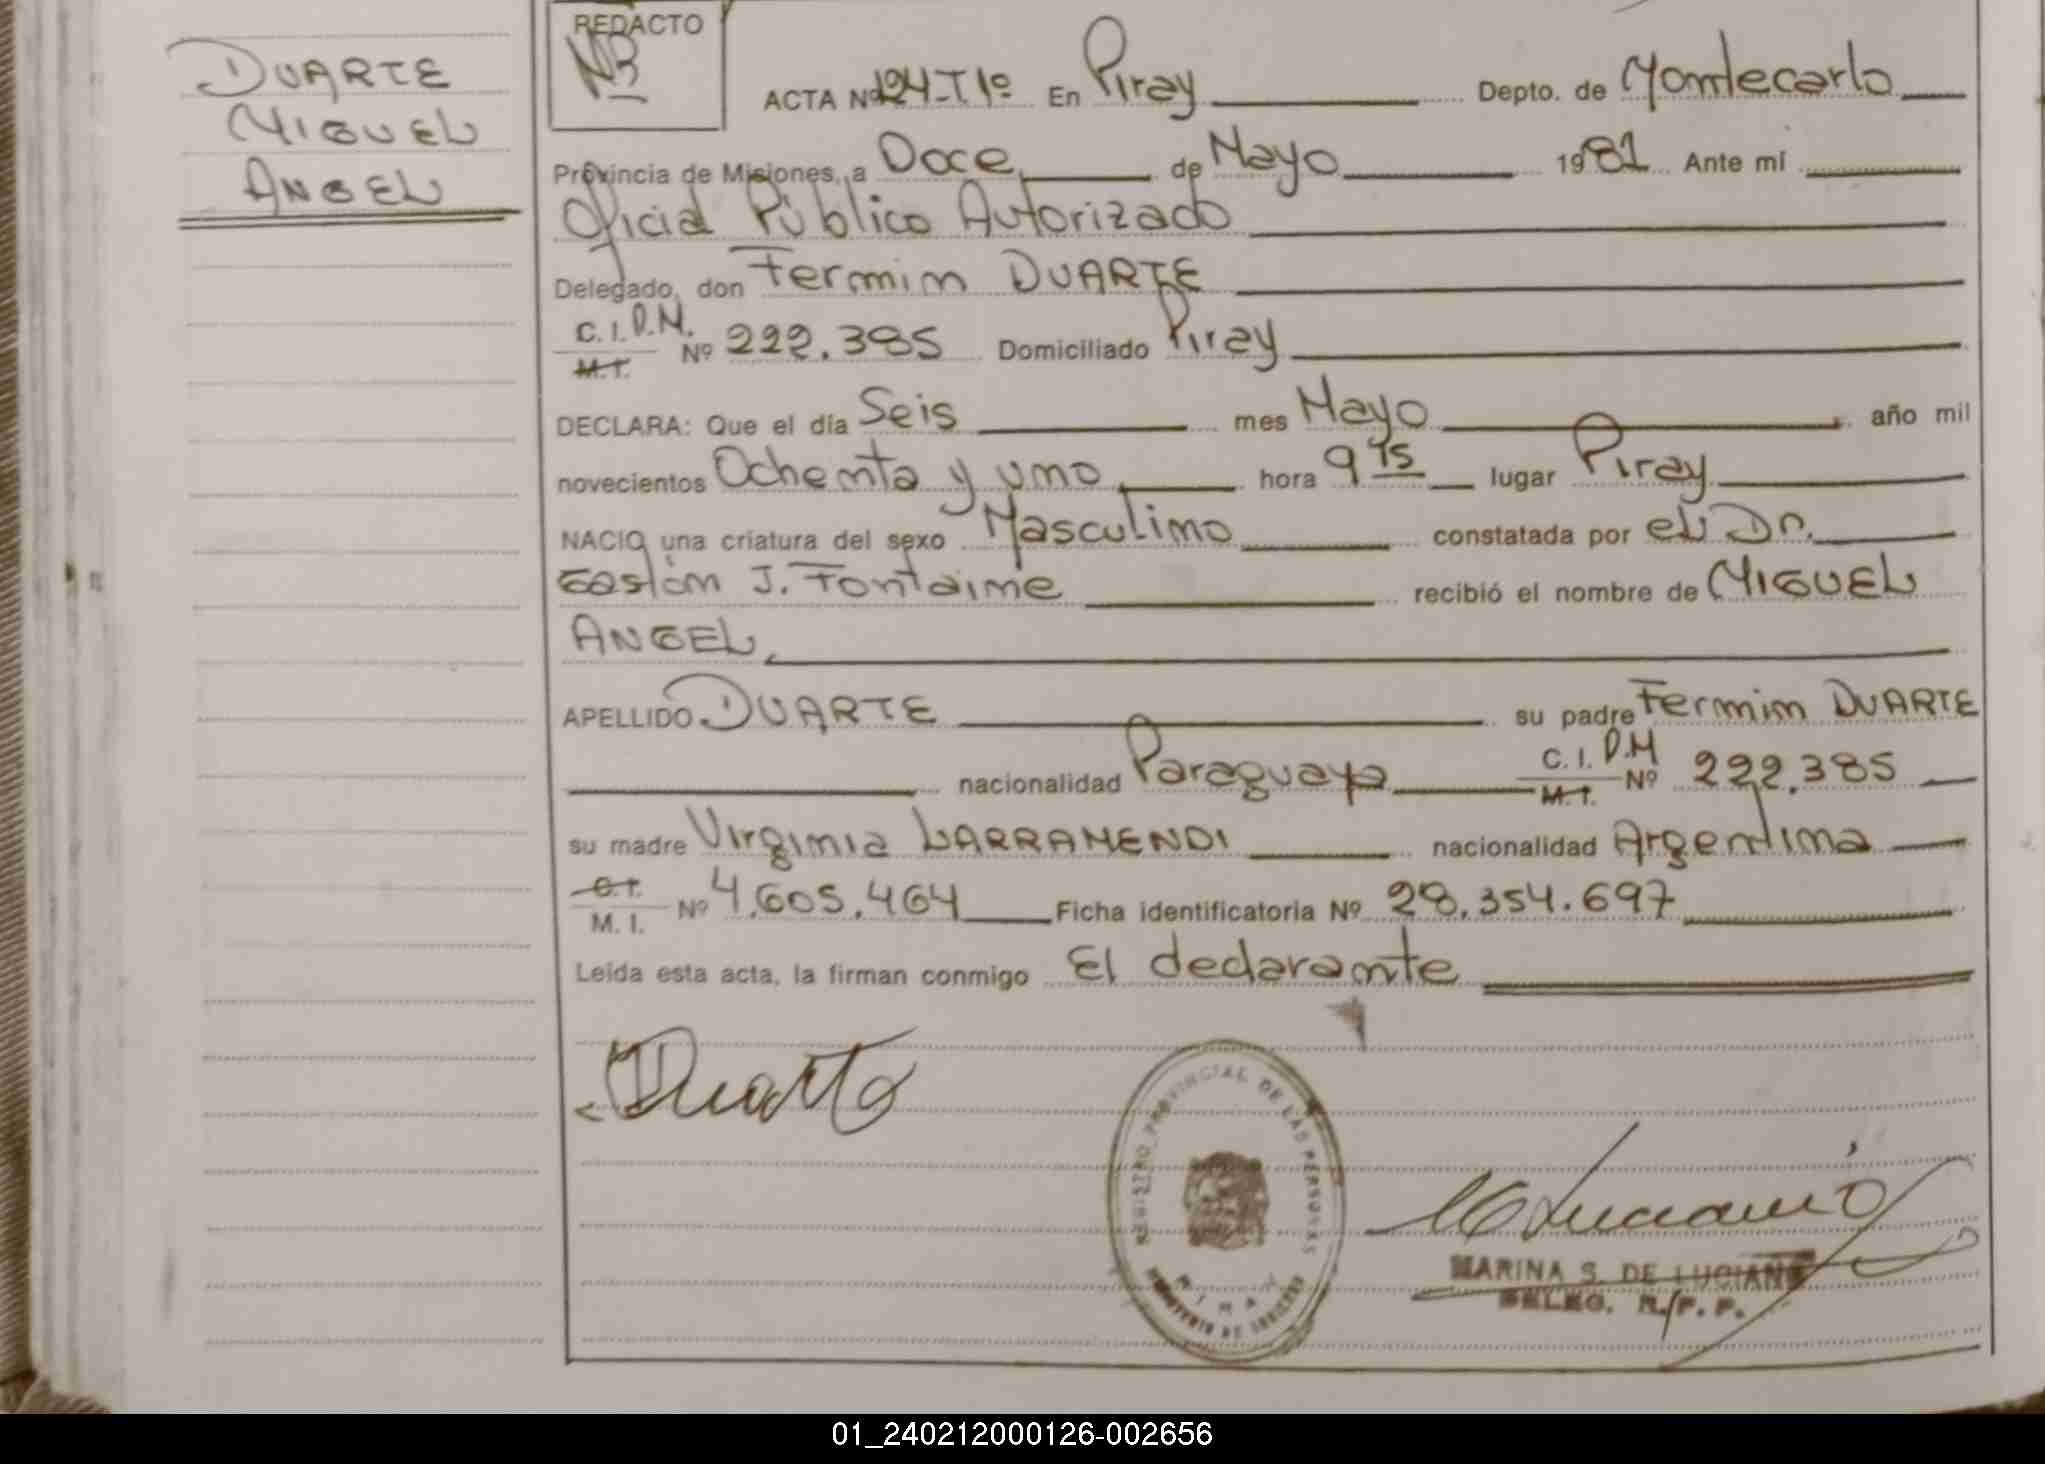 DUARTE
MIGUEL
ANGEL
REDACTO
ACTA Nº 124-T1º En Piray Depto. de Montecarlo
Provincia de Misiones, a Doce de Mayo 1981 Ante mí
Oficial Público Autorizado
Delegado, don Fermin DUARTE
C.I.P.M. Nº 222.385 Domiciliado Piray
M.I.
DECLARA: Que el día Seis mes Mayo año mil
novecientos Ochenta y uno hora 9 15 lugar Piray
NACIO una criatura del sexo Masculino constatada por el Dr.
Gastón J. Fontaine recibió el nombre de MIGUEL
ANGEL
APELLIDO DUARTE su padre Fermin DUARTE
nacionalidad Paraguaya C.I.P.M Nº 222.385
M.I.
su madre Virginia LARRAMENDI nacionalidad Argentina
C.I.
M.I. Nº 4.605.464 Ficha identificatoria Nº 28.354.697
Leída esta acta, la firman conmigo El declarante
Duarte
REGISTRO PROVINCIAL DE LAS PERSONAS
PIRAY
MARINA S. DE LUCIANO
DELEG. R.P.P.
01_240212000126-002656